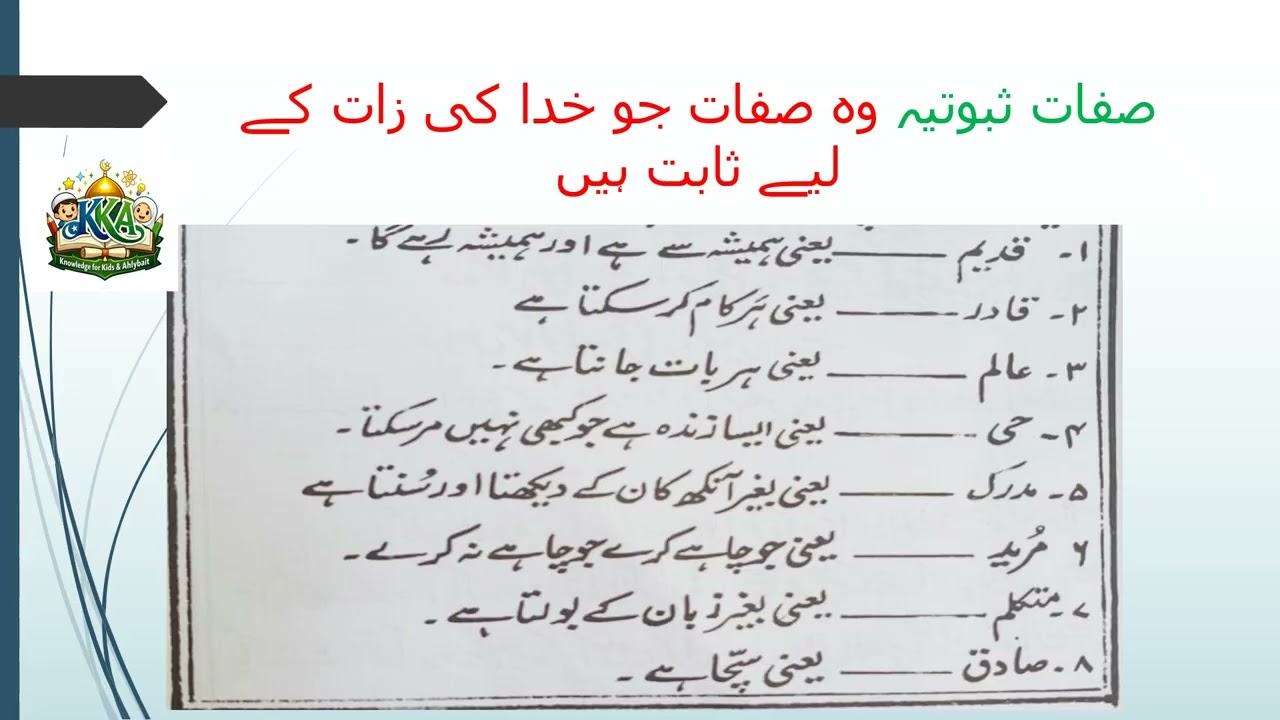 صفات ثبوتیہ وہ صفات جو خدا کی زات کے
لیے ثابت ہیں
KKA
Knowledge for Kids & Ahlybait
۱۔ قدیم ــــــــ یعنی ہمیشہ سے ہے اور ہمیشہ رہے گا۔
۲۔ قادر ــــــــ یعنی ہر کام کر سکتا ہے
۳۔ عالم ــــــــ یعنی ہر بات جانتا ہے۔
۴۔ حی ــــــــ یعنی ایسا زندہ ہے جو کبھی نہیں مر سکتا۔
۵۔ مدرک ــــــــ یعنی بغیر آنکھ کان کے دیکھتا اور سُنتا ہے
۶ مُرید ــــــــ یعنی جو چاہے کرے جو چاہے نہ کرے۔
۷۔ متکلم ــــــــ یعنی بغیر زبان کے بولتا ہے۔
۸۔ صادق ــــــــ یعنی سچّا ہے۔